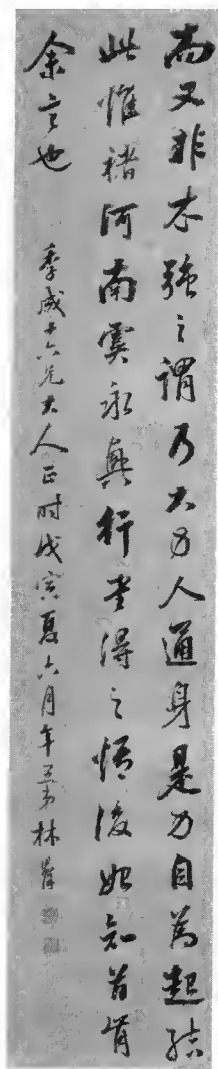 而又非木强之謂乃大力人通身是力自為起結
此惟褚河南虞永興行書得之悟後始知首肯
余言也 季咸十六兄大人正 时戊寅夏六月年弟林